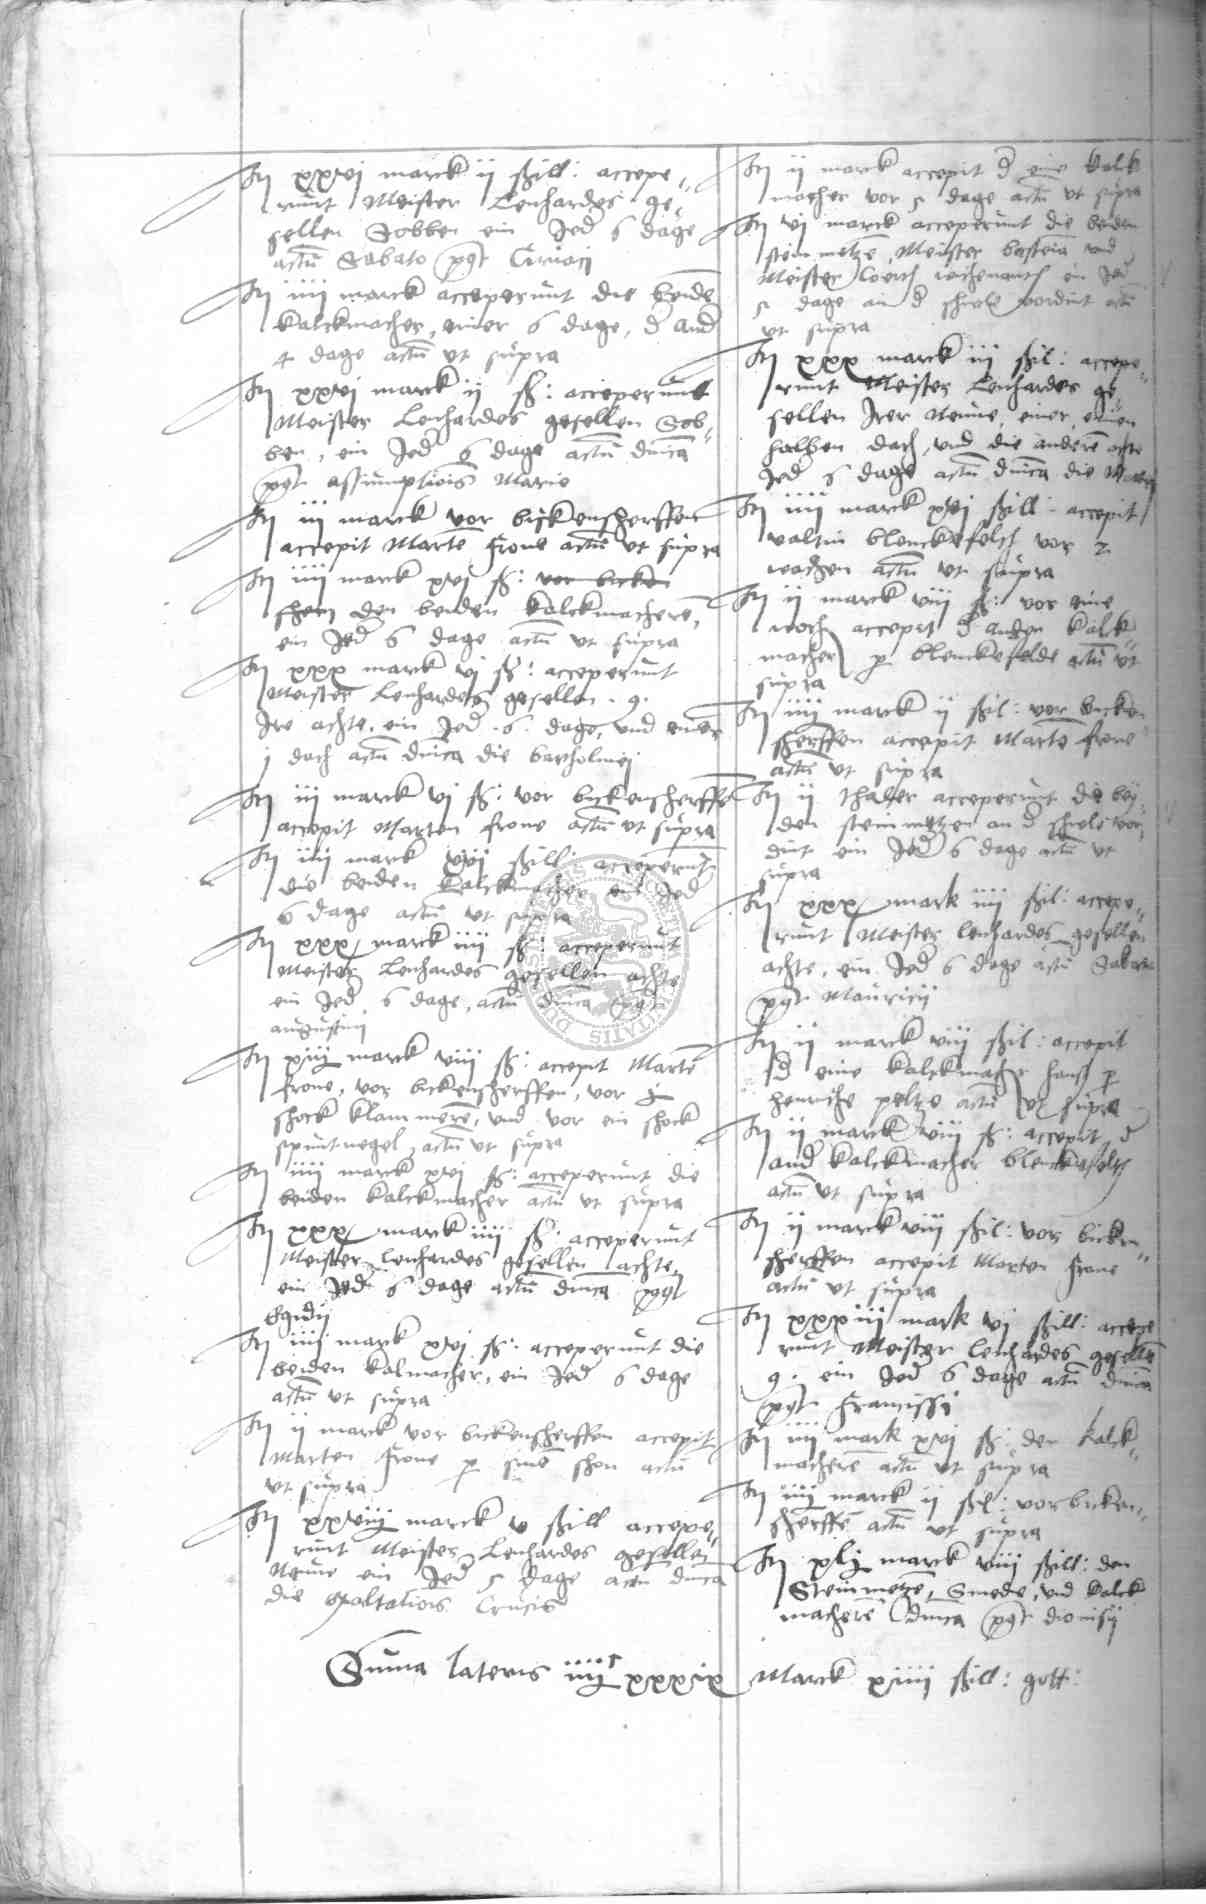 Itm xxvi marck ij ßill: accepe-
runt Meister Lenhardes ge-
sellen Sobben ein Jed 6 dage
actu Sabato pgt Ciriaci
Itm iiij marck acceperunt die beide
kalckmacher, einer 6 dage, d and
4 dage actu vt supra
Itm xxvi marck ij ß: acceperunt
Meister Lenhardes gesellen Sob-
ben, ein Jed 6 dage actu dnica
pgt assumptiois Marie
Itm iij marck vor bickenscherffen
accepit Marte frone actu vt supra
Itm iiij marck xvi ß: vor bicken
den beiden kalckmachere,
ein Jed 6 dage actu vt supra
Itm xxx marck vi ß: acceperunt
Meister Lenhardes gesellen . 9.
Jre achte, ein Jed .6. dage, vnd einer
j dach actu dnica die bartholmei
Itm iij marck vj ß: vor bickenscherffe
accepit Marten frone actu vt supra
Itm iiij marck xvi ßill: acceperunt
die beiden kalckmacher ein Jed
6 dage actu vt supra
Itm xxx marck iiij ß: acceperunt
Meister Lenhardes gesellen achte
ein Jed 6 dage, actu dnica pgt
augustini
Itm xiij marck viij ß: accepit Marte
frone, vor bickenscherffen, vor
schock klammere, vnd vor ein schock
spunt negel, actu vt supra
Itm iiij marck xvi ß: acceperunt die
beiden kalckmacher actu vt supra
Itm xxx marck iiij ß: acceperunt
Meister lenhardes gesellen achte,
ein Jed 6 dage actu dnica pgt
Egidij
Itm iiij marck xvi ß: acceperunt die
beiden kalmacher, ein Jed 6 dage
actu vt supra
Itm ij marck vor bickenscherffen accepit
Marten frone p sine shon actu
vt supra
Itm xxviij marck v ßill accepe-
runt Meister Lenhardes gesellen
Neune ein Jed 5 dage actu dnica
die exaltatiois Crucis
Itm ij marck accepit d eine kalck
macher vor 5 dage actu vt supra
Itm vi marck acceperunt die beiden
steinmetze, Meister bastein vnd
Meister ein Jed
5 dage an d schole actu
vt supra
Itm xxx marck iij ßil: accepe-
runt Meister Lenhardes ge-
sellen Jrer Neune, einer, einen
halben dach, vnd die andere achte
Jed 6 dage actu dnica die
Itm iiij marck xvi ßill: accepit
valtin blenckefelt vor 2
wochen actu vt supra
Itm ij marck viij ß: vor eine
woch accepit d ander kalck
macher p blenckefelde actu vt
supra
Itm iiij marck ij ßil: vor bicken
scherffen accepit Marte frone
actu vt supra
Itm ij thaler acceperunt die bey-
den steinmetzen an d schole vor-
dint ein Jed 6 dage actu vt
supra
Itm xxx mark iiij ßil: accepe-
runt Meister lenhardes gesellen
achte, ein Jed 6 dage actu Sabato
pgt Mauricij
Itm ij marck viij ßil: accepit
d eine kalckmacher hans p
henriche peltze actu vt supra
Itm ij marck viij ß: accepit d
and kalckmacher blenckefelt
actu vt supra
Itm ij marck viij ßil: vor bicken-
scherffen accepit Marten frone
actu vt supra
Itm xxxiij mark vi ßill: accepe
runt Meister lenhardes geselle
9. ein Jed 6 dage actu dnica
pgt francissi
Itm iiij mark xvi ß: den kalck-
machere actu vt supra
Itm iiij marck ij ßil: vor bicken-
scherffe actu vt supra
Itm marck viij ßill: den
Steinmetze, Smede, vnd kalck
machere dnica pgt dionisij
Suma lateris iiijc xxxix Marck xiiij ßill: gott: